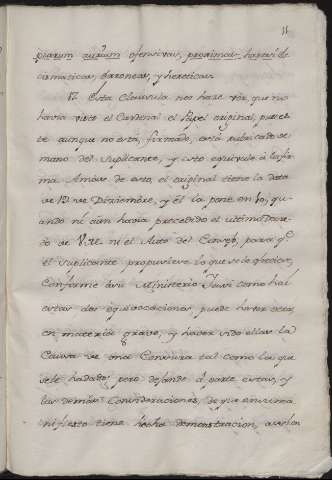 11
piarum aurium ofensivas, proximas heresi, de
cismaticas, erroneas, y hereticas.
17. Esta Clausula nos hace vèr, que no
havia visto el Cardenal el Papel original, pues es
te aunque no està firmado, està rubricado de
mano del Suplicante, y esto equivale à la fir
ma. Amàs de esto, el original tiene la data
de 19. de Diziembre, y èl la pone en 10, qu
ando ni aùn havia precedido el ultimo Acuer
do de V. Mg. ni el Auto del Consejo, para qe.
el Suplicante propusiere lo que se le ofreciera,
conforme à su Ministerio. Y assi como hai
estas dos equivocaciones, puede haver otras
en materias graves, y haver sido ellas la
Causa de una Censura tal como la que
se le ha dado; pero dejando à parte estas, y
las demàs Consideraciones, de que en su ma
nifiesto tiene hecha demonstracion, acerca